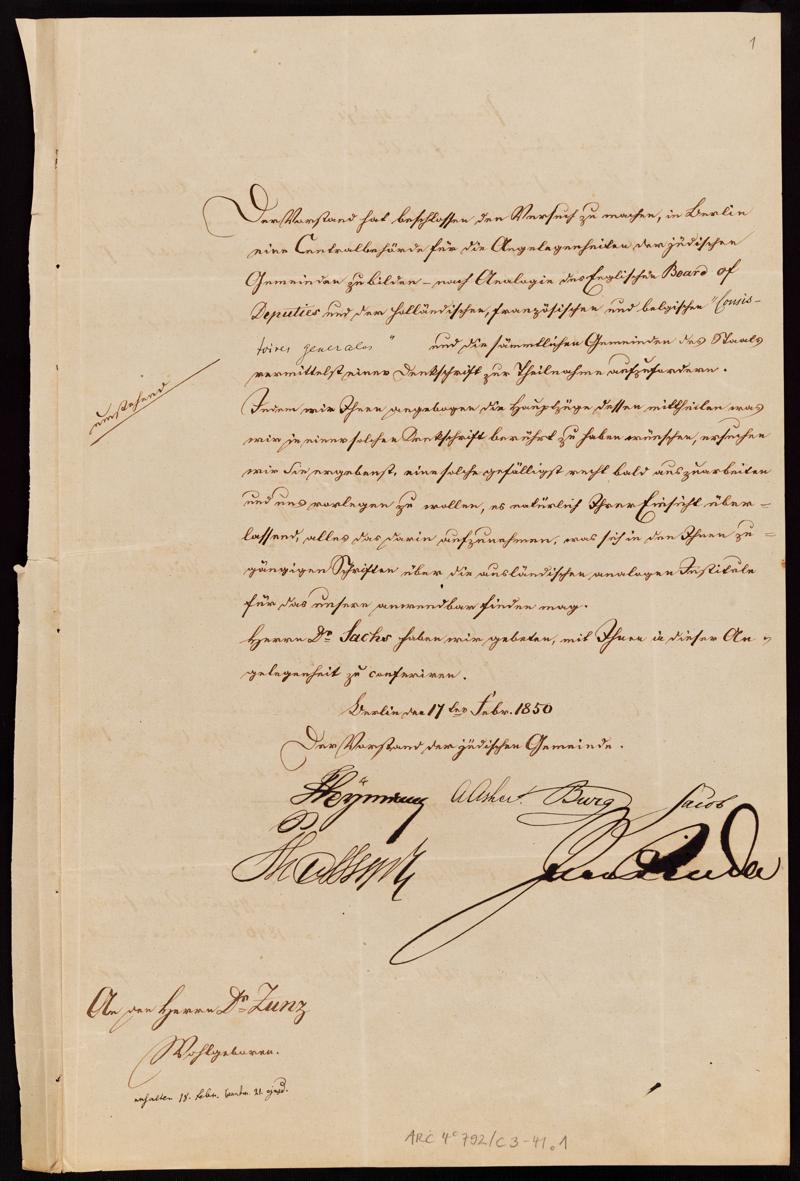 1
Der Vorstand hat beschlossen den Versuch zu machen, in Berlin
eine Centralbehörde für die Angelegenheiten der jüdischen
Gemeinden zu bilden – nach Analogie des Englischen Board of
Deputies und der holländischen, französischen und belgischen "Consis-
toires generales" und die sämmtlichen Gemeinden des Staats
vermittelst einer Denkschrift zur Theilnahme aufzufordern.
umstehend
Indem wir Ihnen angebogen die Hauptzüge dessen mittheilen was
wir in einer solchen Denkschrift berührt zu haben wünschen, ersuchen
wir Sie, ergebenst, eine solche gefälligst recht bald auszuarbeiten
und uns vorlegen zu wollen, es natürlich Ihrer Einsicht über-
lassend, alles das darin aufzunehmen, was sich in den Ihnen zu-
gängigen Schriften über die ausländischen analogen Institute
für das unsere anwendbar finden mag.
Herrn Dr Sachs haben wir gebeten, mit Ihnen in dieser An-
gelegenheit zu conferiren.
Berlin den 17ten Febr. 1850
Der Vorstand der jüdischen Gemeinde.
Heymann A Asher. Burg Jacob
An den Herrn Dr Zunz
Wohlgeboren.
erhalten 18. Febr. beantw. 21. ejusd.
ARC 4° 792/C3-41.1